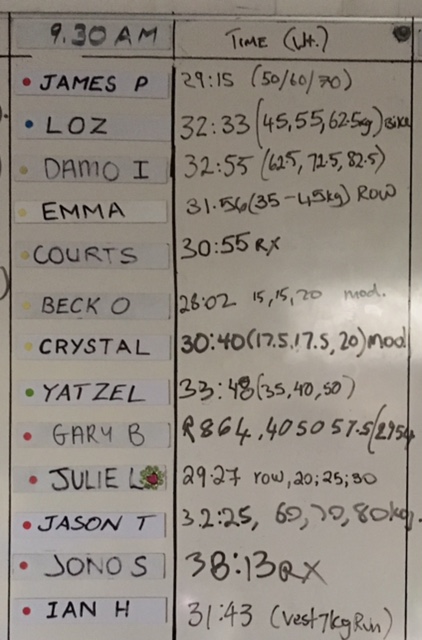 9.30 AM TIME (Wt.)
JAMES P 29:15 (50/60/70)
LOZ 32:33 (45,55,62.5kg) Bike
DAMO I 32:55 (62.5, 72.5, 82.5)
EMMA 31.56 (35-45kg) ROW
COURTS 30:55 RX
BECK O 28:02 15,15,20 mod.
CRYSTAL 30:40 (17.5,17.5, 20) mod
YATZEL 33:48 (35,40,50)
GARY B 40 50 57.5
JULIE L 29.27 row, 20; 25; 30
JASON T 32:25, 60, 70, 80kg.
JONO S 38:13 RX
IAN H 31:43 (Vest 7kg Run)